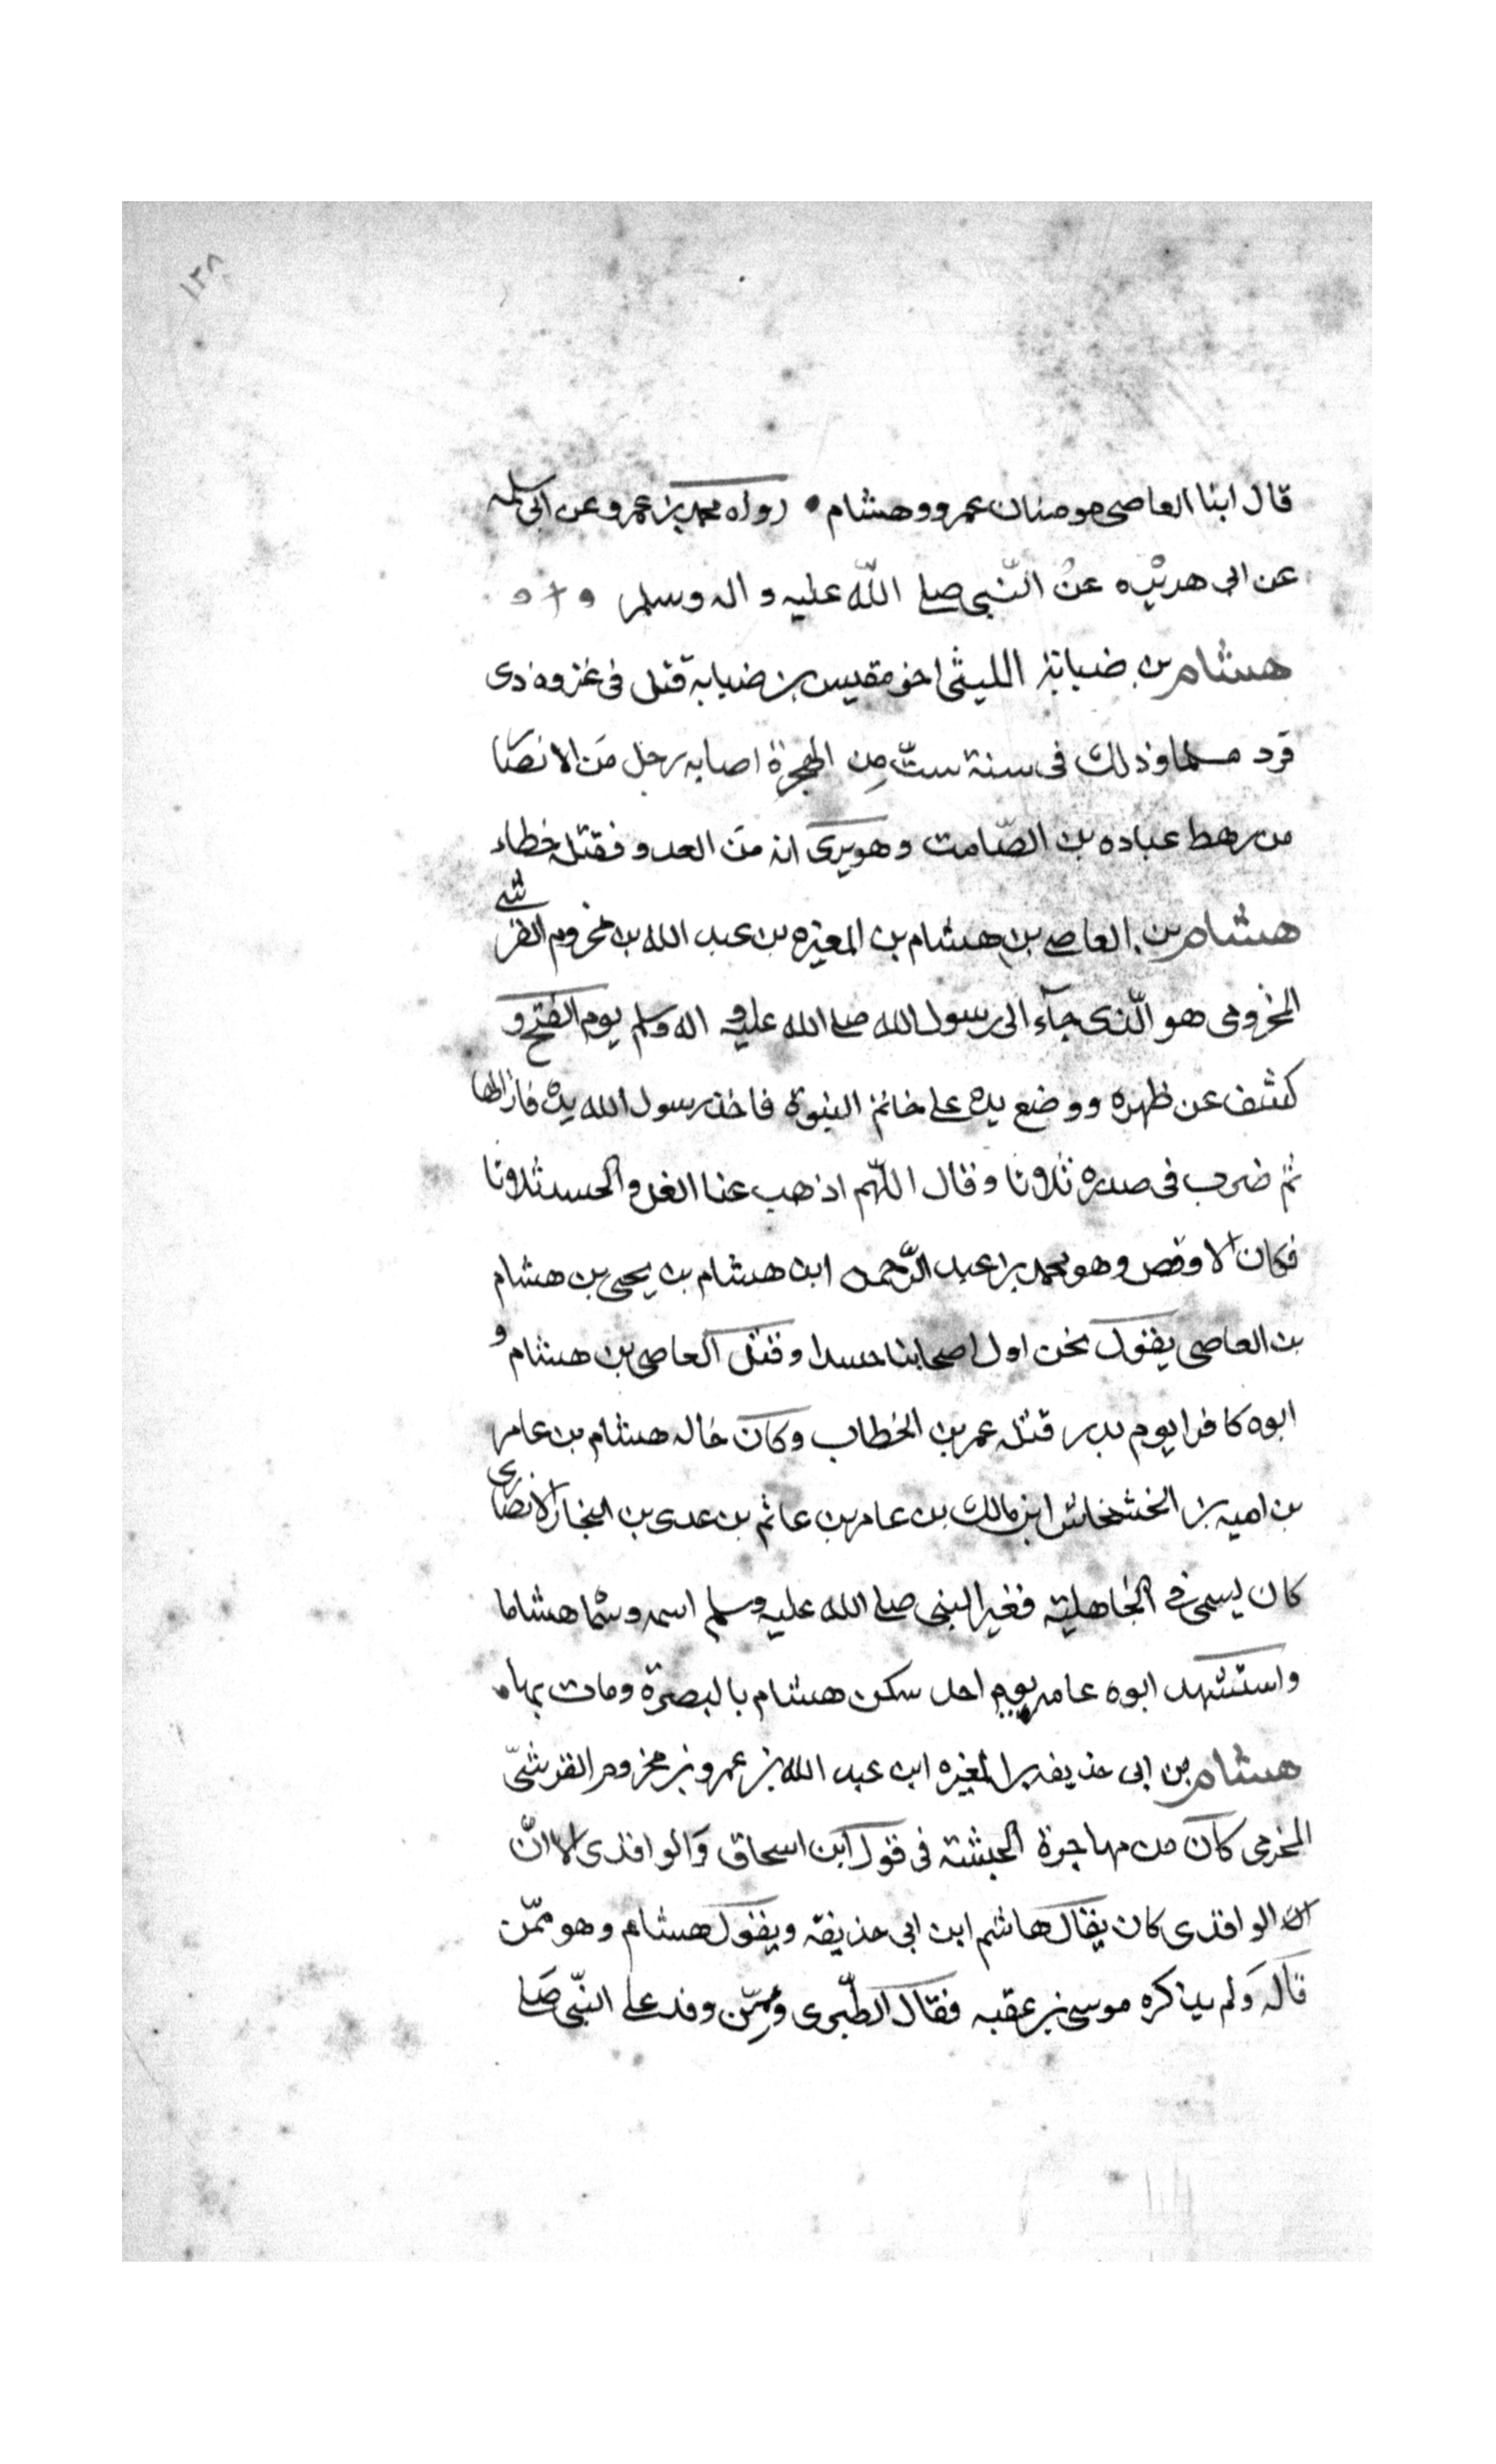 ١٢٨
قال ابنا العاصی مومنان عمرو وهشام • رواه محمد بن عمرو عن ابی سلمه
عن ابی هریره عن النّبی صلی اللّه علیه و اله وسلم
هشام بن ضبابة اللیثی اخو مقیس بن ضبابة قتل فی غزوه ذی
قرد مسلما وذلك فی سنة ستّ مِن الهجرة اصابه رجل مَن الانصا
من رهط عباده بن الصّامت وهو یری انه مَن العدو فقتله خطاء
هشام بن العاصی بن هشام بن المغیره بن عبد الله بن مخزوم القرشی
المخزومی هو الّذی جآء الی رسول الله صلی الله علیه و اله وسلم یوم الفتح و
کشف عن ظهره ووضع یده علی خاتم النبوة فاخذ رسول الله یده فازالها
ثم ضرب فی صدره ثلاثا وقال اللّهم اذهب عنا الغل والحسد ثلاثا
فکان الاوقص وهو محمد بن عبد الرّحمن ابن هشام بن یحیی بن هشام
بن العاصی یقول نحن اول اصحابنا حسدا وقتل العاصی بن هشام و
ابوه کافرا یوم بدر قتله عمر بن الخطاب وکان خاله هشام بن عامر
بن امیه بن الخشخاش ابن مالك بن عامر بن عاثم بن عدی بن النجار الانصاری
کان یسمی فی الجاهلیة فغیر النبی صلی الله علیه وسلم اسمه وسما هشاما
واستشهد ابوه عامر یوم احد سکن هشام بالبصرة ومات بها
هشام بن ابی حذیفه بن المغیره ابن عبد الله بن عمرو بن مخزوم القرشیّ
المخزمی کان من مهاجرة الحبشة فی قول ابن اسحاق وَالواقدی الا انّ
ان الواقدی کان یقال هاشم ابن ابی حذیفه ویقول هشام وهو ممّن
قاله وَلم یذکره موسی بن عقبه فقال الطّبری وممِّن وفد علی النبّی صَلی